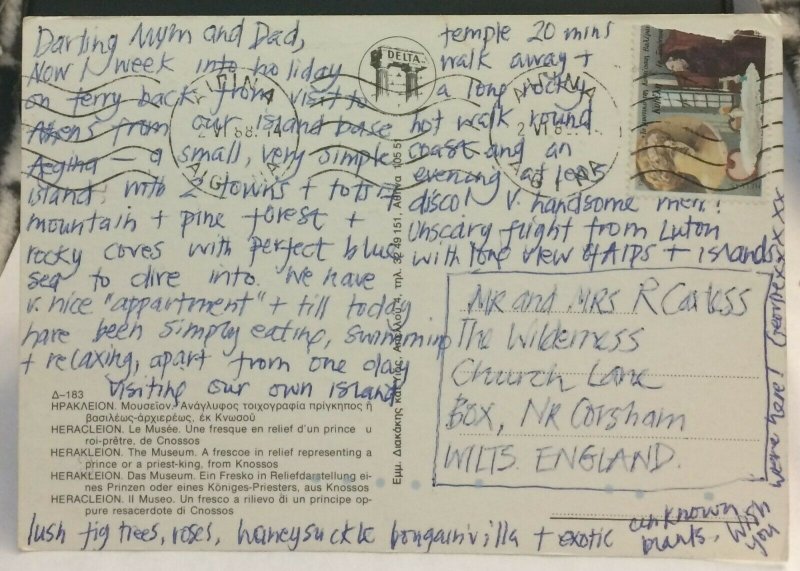 Darling Mum and Dad,
Now 1 week into holiday
on ferry back from visit to
Athens from our island base
Aegina — a small, very simple
island with 2 towns +
mountain + pine forest +
rocky coves with perfect blue
sea to dive into. We have
v. nice "appartment" + till today
have been simply eating, swimming
+ relaxing, apart from one day
visiting our own island
temple 20 mins
walk away +
a long rocky
hot walk round
coast and an
evening at
disco! v. handsome men!
Unscary flight from Luton
with view of Alps + islands
lush fig trees, roses, honeysuckle bougainvilla + exotic
unknown
plants. Wish
you
were here!
DELTA
AIGINA
AIGINA
Mr and Mrs R Carless
The Wilderness
Church Lane
Box, Nr Corsham
WILTS. ENGLAND.
Δ–183
ΗΡΑΚΛΕΙΟΝ. Μουσεῖον. Ἀνάγλυφος τοιχογραφία πρίγκηπος ἤ
βασιλέως-ἀρχιερέως, ἐκ Κνωσοῦ
HERACLEION. Le Musée. Une fresque en relief d'un prince u
roi-prêtre, de Cnossos
HERAKLEION. The Museum. A frescoe in relief representing a
prince or a priest-king, from Knossos
HERAKLEION. Das Museum. Ein Fresko in Reliefdarstellung ei-
nes Prinzen oder eines Königes-Priesters, aus Knossos
HERACLEION. Il Museo. Un fresco a rilievo di un principe op-
pure resacerdote di Cnossos